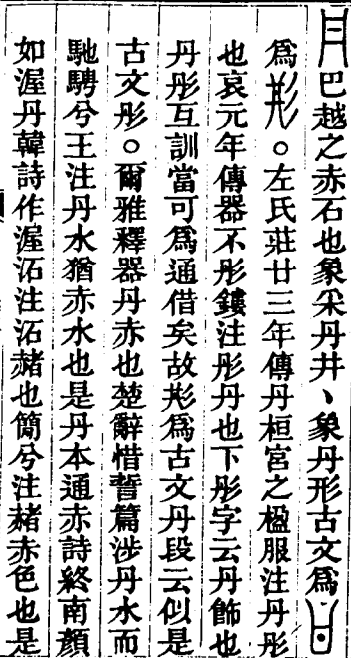 巴越之赤石也象采丹井丶象丹形古文爲
爲。左氏莊廿三年傳丹桓宮之楹服注丹彤
也哀元年傳器不彤鏤注彤丹也下彤字云丹飾也
丹彤互訓當可爲通借矣故彤爲古文丹段云似是
古文彤。爾雅釋器丹赤也楚辭惜誓篇涉丹水而
馳騁兮王注丹水猶赤水也是丹本通赤詩終南顏
如渥丹韓詩作渥沰注沰赭也簡兮注赭赤色也是